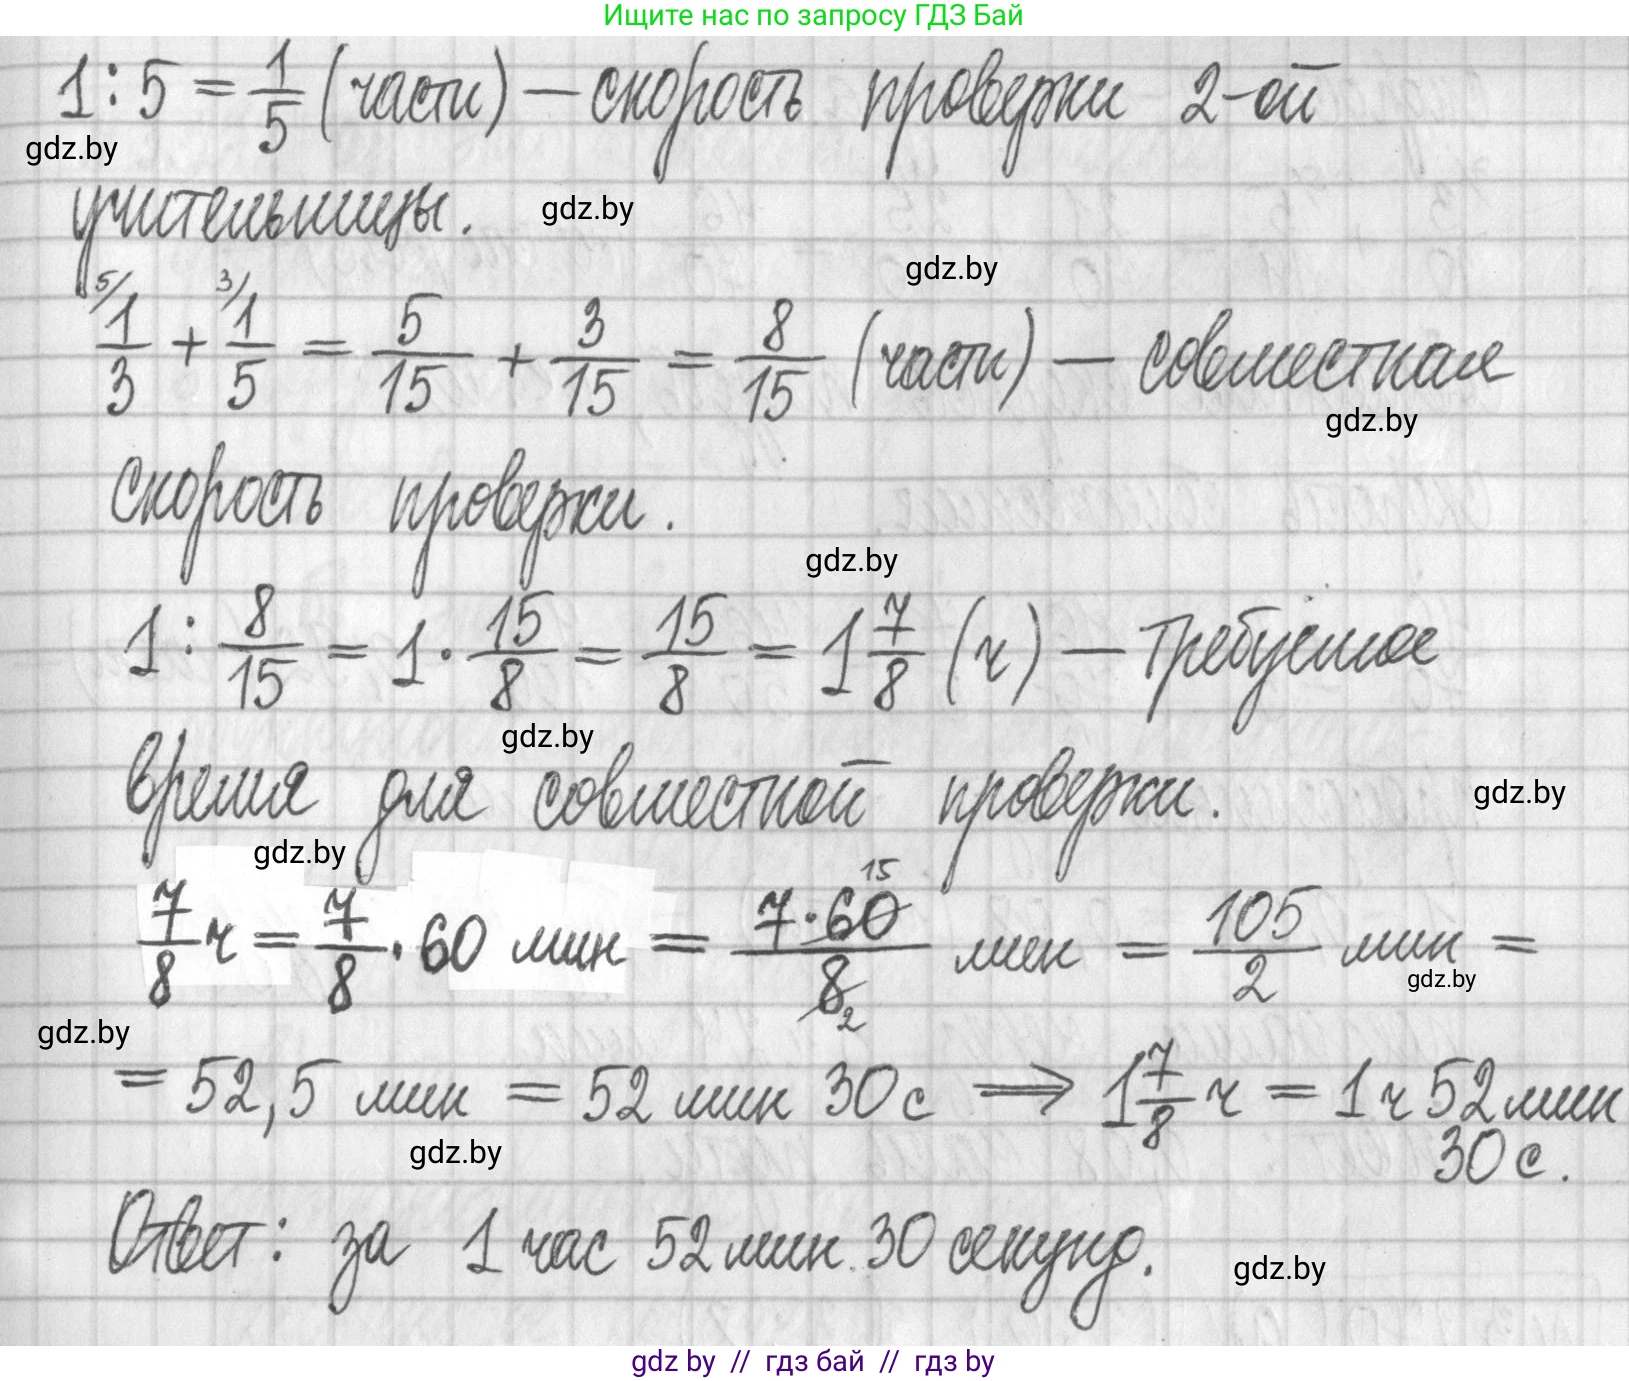 Ищите нас по запросу ГДЗ Бай
1 : 5 = 1/5 (части) — скорость проверки 2-ой
gdz.by
учительницы.
gdz.by
gdz.by
5/ 1/3 + 3/ 1/5 = 5/15 + 3/15 = 8/15 (части) — совместная
gdz.by
скорость проверки.
gdz.by
1 : 8/15 = 1 · 15/8 = 15/8 = 1 7/8 (ч) — требуемое
gdz.by
время для совместной проверки.
gdz.by
gdz.by
7/8 ч = 7/8 · 60 мин = 7·60 15/8 2 мин = 105/2 мин =
gdz.by
gdz.by
= 52,5 мин = 52 мин 30 с ⟹ 1 7/8 ч = 1 ч 52 мин
30 с.
gdz.by
Ответ: за 1 час 52 мин. 30 секунд.
gdz.by
gdz by // гдз бай // гдз by